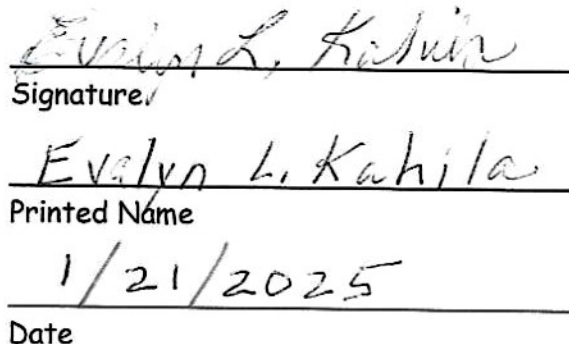 Evalyn L. Kahila
Signature
Evalyn L. Kahila
Printed Name
1/21/2025
Date